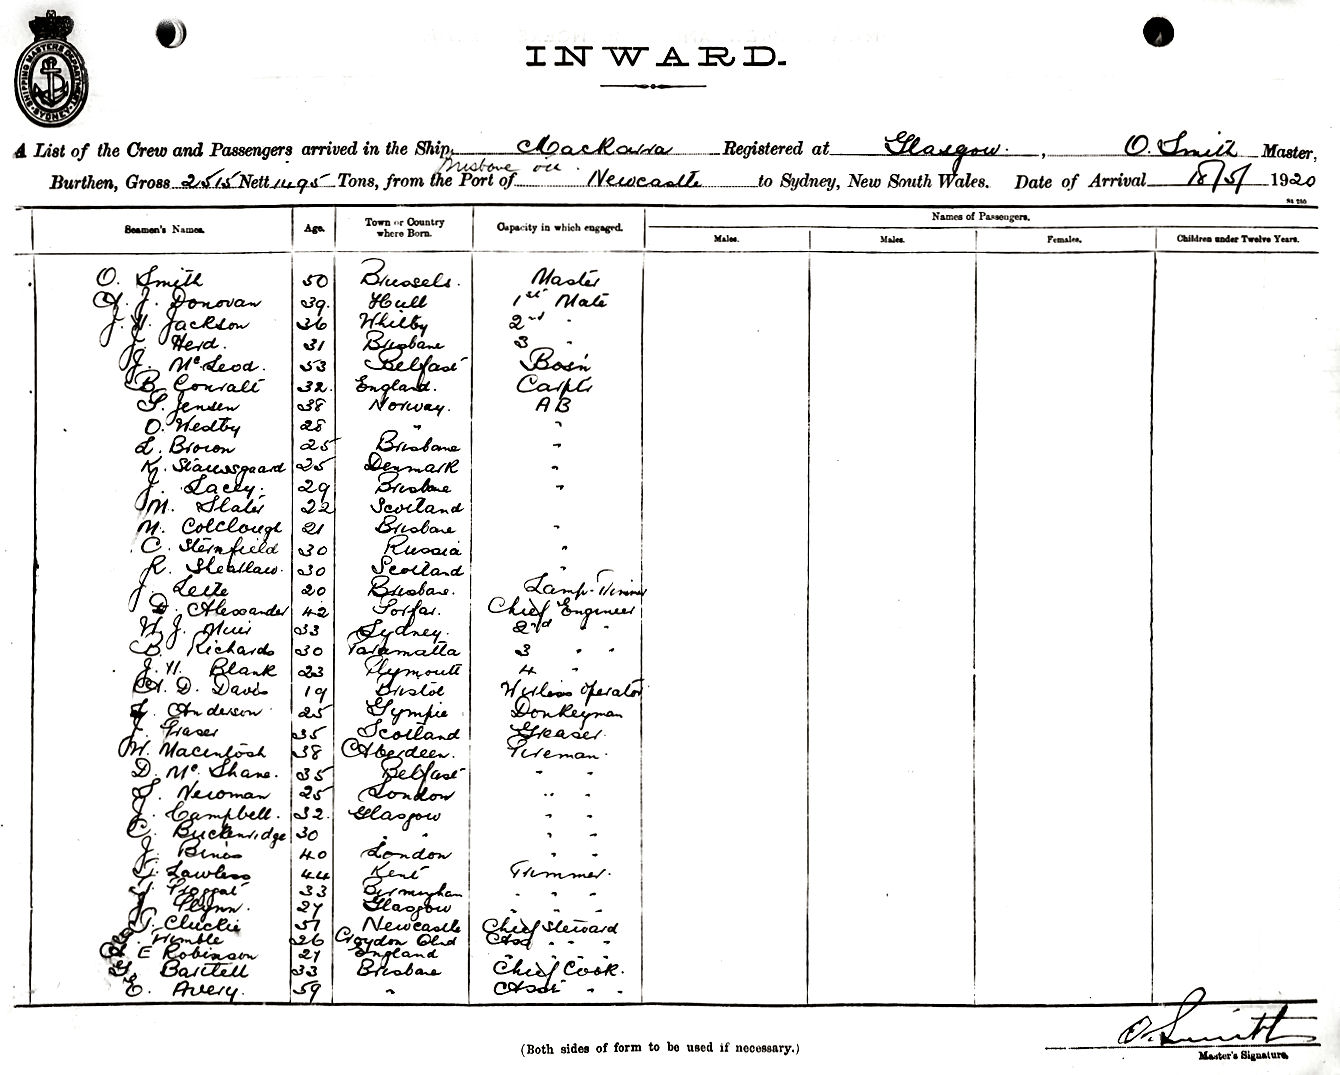 SHIPPING MASTERS DEPARTMENT SYDNEY
INWARD.
A List of the Crew and Passengers arrived in the Ship, Mackarra Registered at Glasgow. , O. Smith Master,
Brisbane via
Burthen, Gross 2515 Nett 1495 Tons, from the Port of Newcastle to Sydney, New South Wales. Date of Arrival 18/5/ 1920
Seamen's Names. Age. Town or Country where Born. Capacity in which engaged. Names of Passengers.
Males. Males. Females. Children under Twelve Years.
O. Smith 50 Brussels. Master
A. J. Donovan 39. Hull 1st Mate
J. H. Jackson 36 Whitby 2nd "
J. Herd. 31 Brisbane 3 "
J. McLeod. 53 Belfast Bosn
B. Conralt 32. England. Carptr
S. Jensen 38 Norway. A B
O. Hedby 28 " "
L. Brown 25 Brisbane "
K. Stausgaard 25 Denmark "
J. Lacey. 29 Brisbane "
M. Slater 22 Scotland
M. Colclough 21 Brisbane "
C. Sternfield 30 Russia "
R. 30 Scotland "
J. Leite 20 Brisbane. Lamp-Trimmer
D. Alexander 42 Forfar. Chief Engineer
W. J. Muir 33 Sydney. 2nd " "
B. Richards 30 Paramatta 3 " "
J. H. Blank 23 Plymouth 4 "
A. D. Davis 19 Bristol Wirless Operator
L. Anderson 25 Gympie Donkeyman
J. Fraser 35 Scotland Greaser.
W. Macintosh 38 Aberdeen. Fireman.
D. McShane. 35 Belfast " "
S. Newman 25 London " "
J. Campbell. 32. Glasgow " "
C. Buckenridge 30 " " " "
J. Binns 40 London " "
G. Lawless 44 Kent Trimmer.
Froggat 33 Birmingham " "
J. Flynn. 27 Glasgow " "
T. Cluckie 57 Newcastle Chief Steward
Trimble 26 Croydon Qld Asst " "
E Robinson 27 England " "
Bartell 33 Brisbane Chief Cook.
E. Avery. 59 " Asst " "
O. Smith
(Both sides of form to be used if necessary.)
Master's Signature.